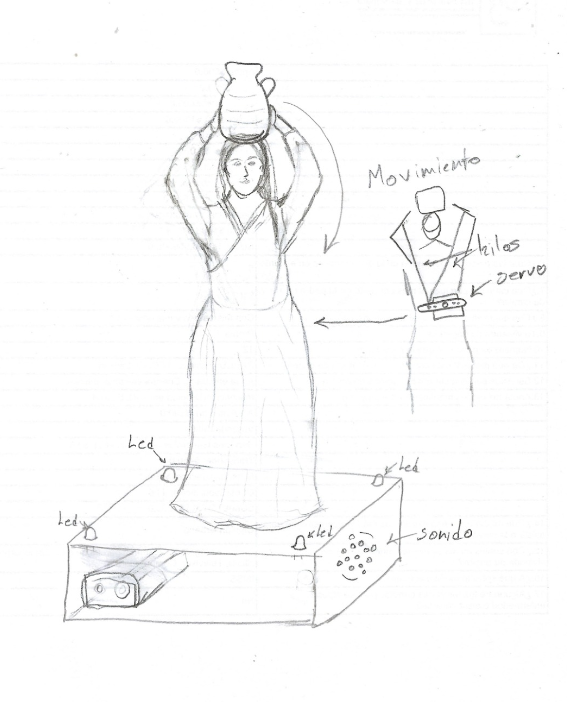 Movimiento
hilos
servo
Led
Led
Led
Led
sonido